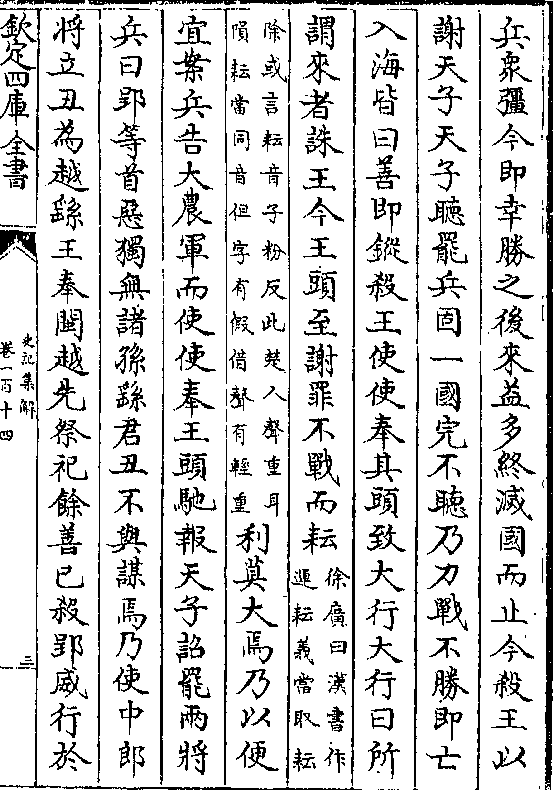 兵衆彊今即幸勝之後來益多終滅國而止今殺王以
謝天子天子聽罷兵固一國完不聽乃力戰不勝即亡
入海皆曰善即鏦殺王使使奉其頭致大行大行曰所
謂來者誅王今王頭至謝罪不戰而耘徐廣曰漢書作運耘義當取耘
除或言耘音于粉反此楚人聲重耳隕耘當同音但字有假借聲有輕重利莫大焉乃以便
宜案兵告大農軍而使使奉王頭馳報天子詔罷兩將
兵曰郢等首惡獨無諸孫繇君丑不與謀焉乃使中郎
將立丑為越繇王奉閩越先祭祀餘善已殺郢威行於
欽定四庫全書
史記集解
卷一百十四
三